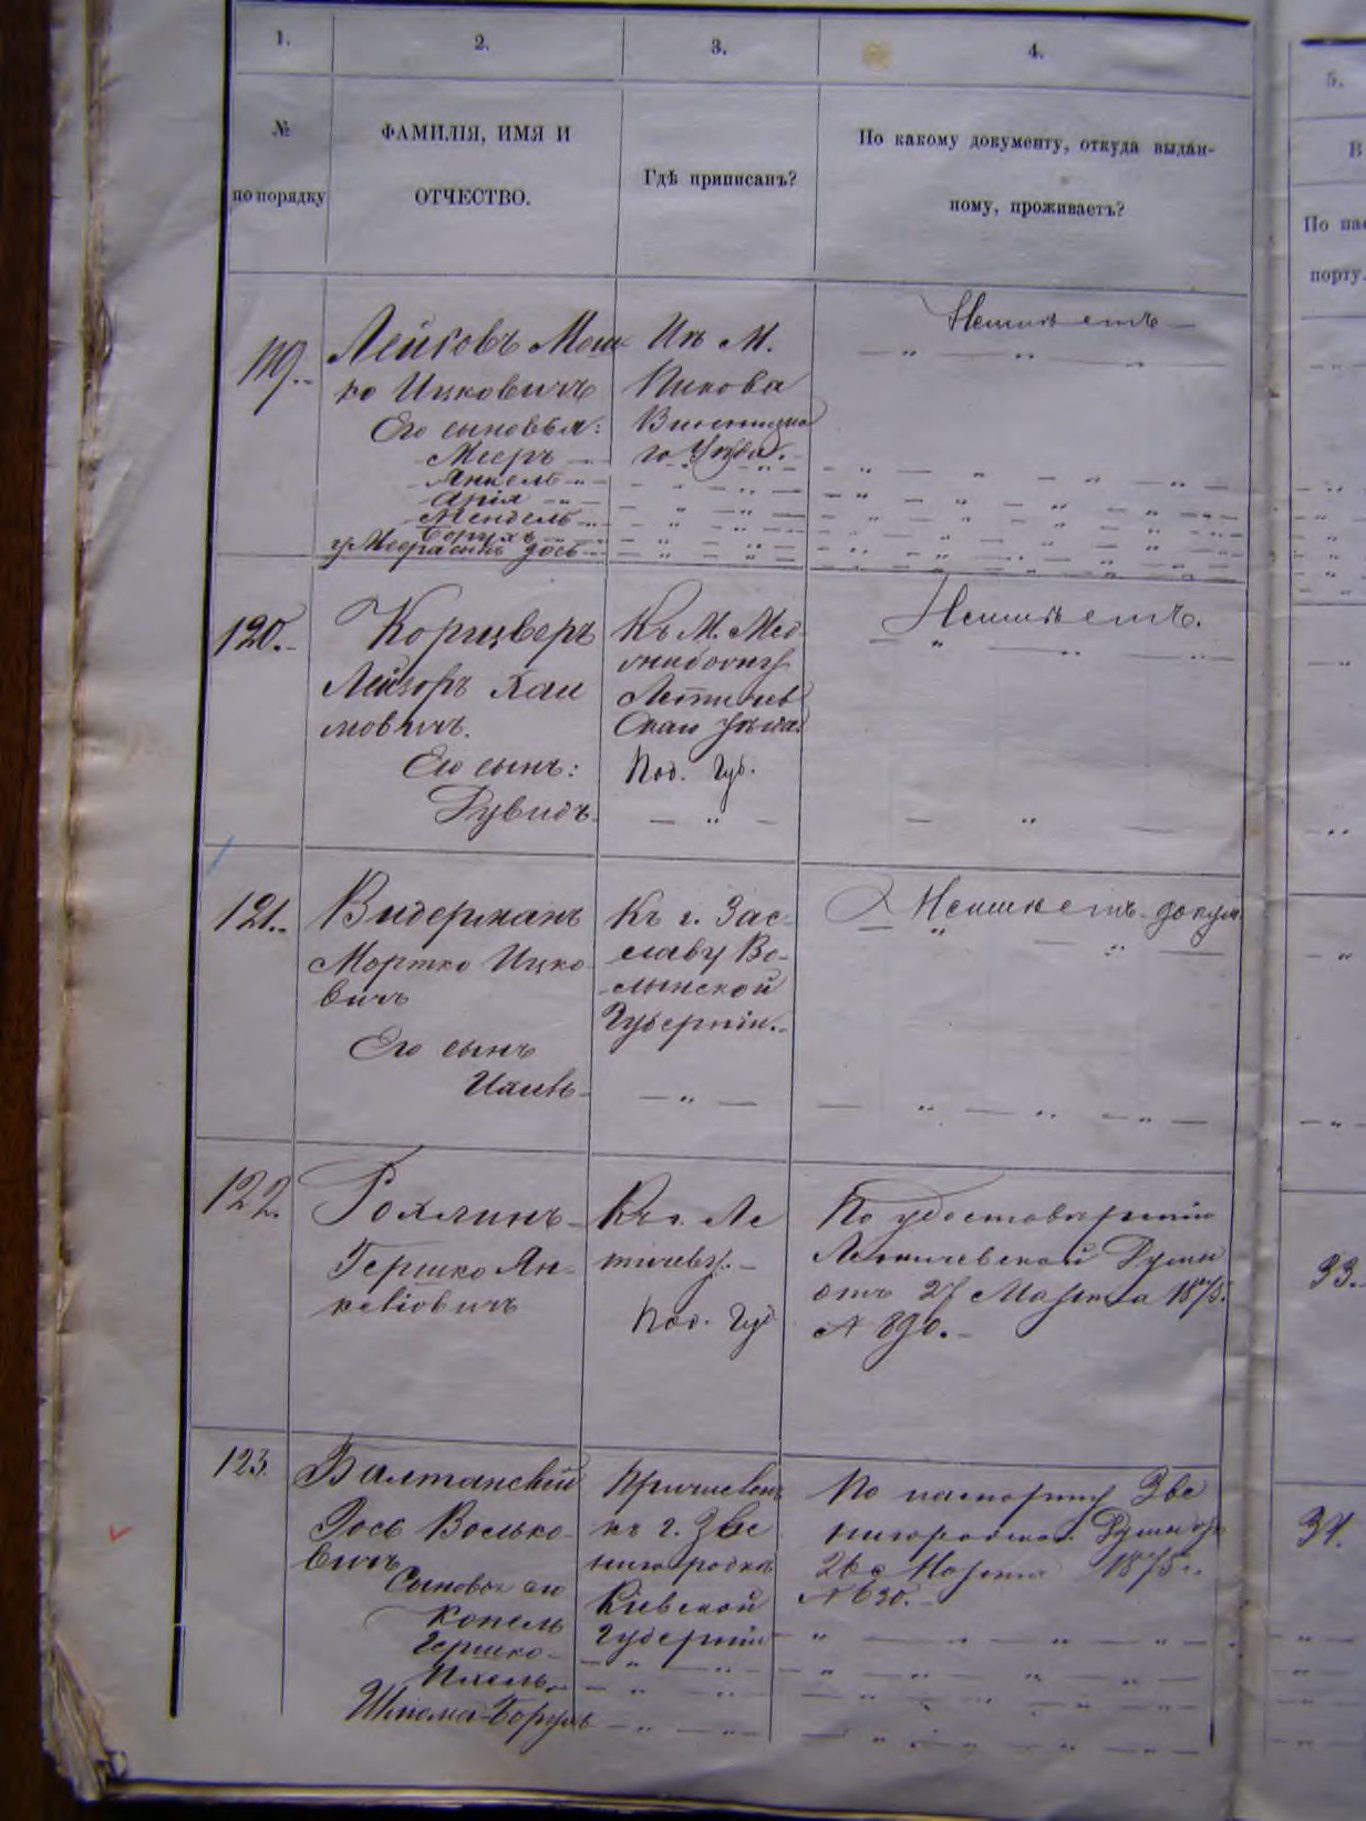 1.
2.
3.
4.
5.
№
по порядку
ФАМИЛІЯ, ИМЯ И
ОТЧЕСТВО.
Гдѣ приписанъ?
По какому документу, откуда выдан-
ному, проживаетъ?
В
По пас
порту.
119.
Лейковъ Мош
ко Ицковичъ
Его сыновья:
Мееръ
Янкель
Арія
Мендель
Борухъ
у Меера сынъ Іось
Къ М.
Пикова
Винницка
го Уѣзда.
Неимѣетъ
120.
Корцверъ
Лейзоръ Хаи
мовичъ.
Его сынъ:
Рувидъ
Къ М. Мед
жибожу
Летичев
скаго уѣзда
Под. Губ.
Неимѣетъ.
121.
Видерманъ
Мортко Ицко
вичъ
Его сынъ
Къ г. Зас
славу Во-
лынской
Губерніи.
Неимѣетъ докум
122.
Рохлинъ
Гершко Ян-
келіовичъ
Къ г. Ле
тичеву.
Под. Губ
По удостовѣренію
Летичевской Думы
отъ 27 Марта 1875.
№ 890.
33.
123.
Балтанскій
Іось Волько-
вичъ
Сыновья его
Копель
Гершко
Ихель
Шліома-Борухъ
Причисленъ
къ г. Зве
нигородкѣ
Кіевской
Губерніи
По паспорту Зве
нигородской Думы отъ
26 Марта 1875 г.
№ 630.
34.